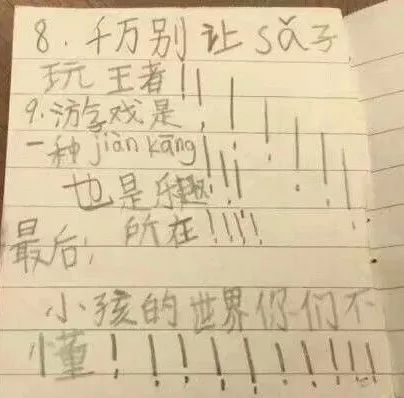 8.千万别让sǎ子
玩王者!!!!!!!!
9.游戏是
一种jiàn kāng!!!
也是乐趣!!!
所在!!!!!
最后,
小孩的世界你们不
懂!!!!!!!!!!!